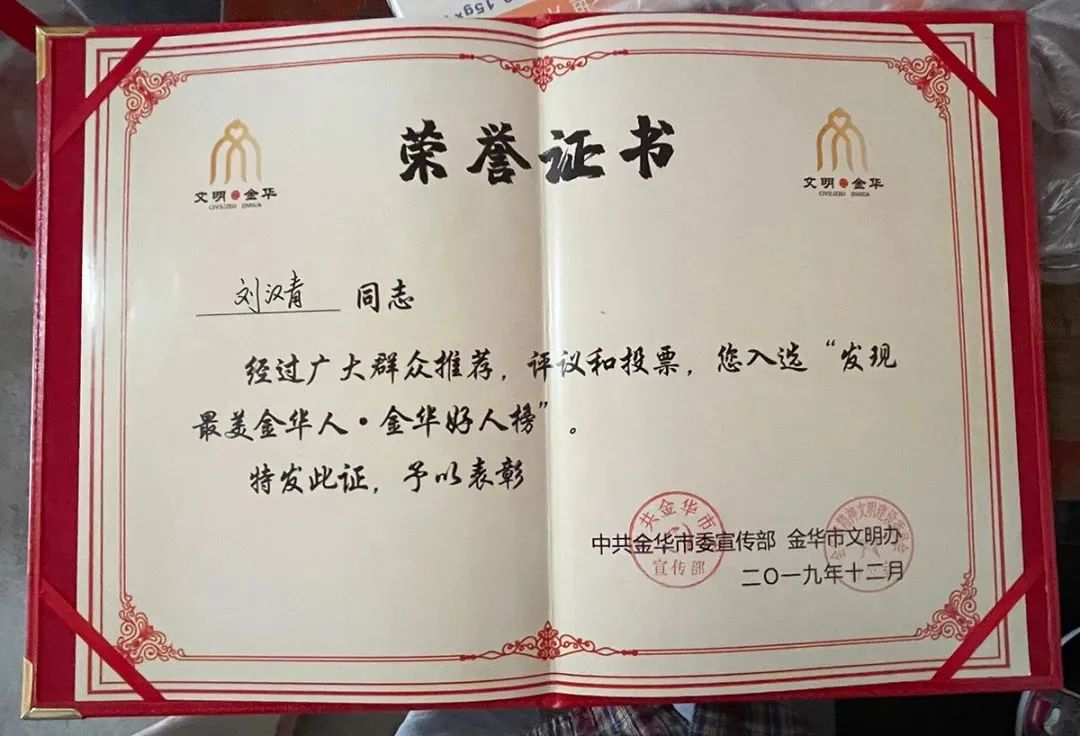 0.15g×
荣誉证书
文明金华
CIVILIZED JINHUA
文明金华
CIVILIZED JINHUA
刘汉青 同志
经过广大群众推荐，评议和投票，您入选“发现
最美金华人·金华好人榜”。
特发此证，予以表彰
中共金华市委宣传部 金华市文明办
二〇一九年十二月
共金华市
宣传部